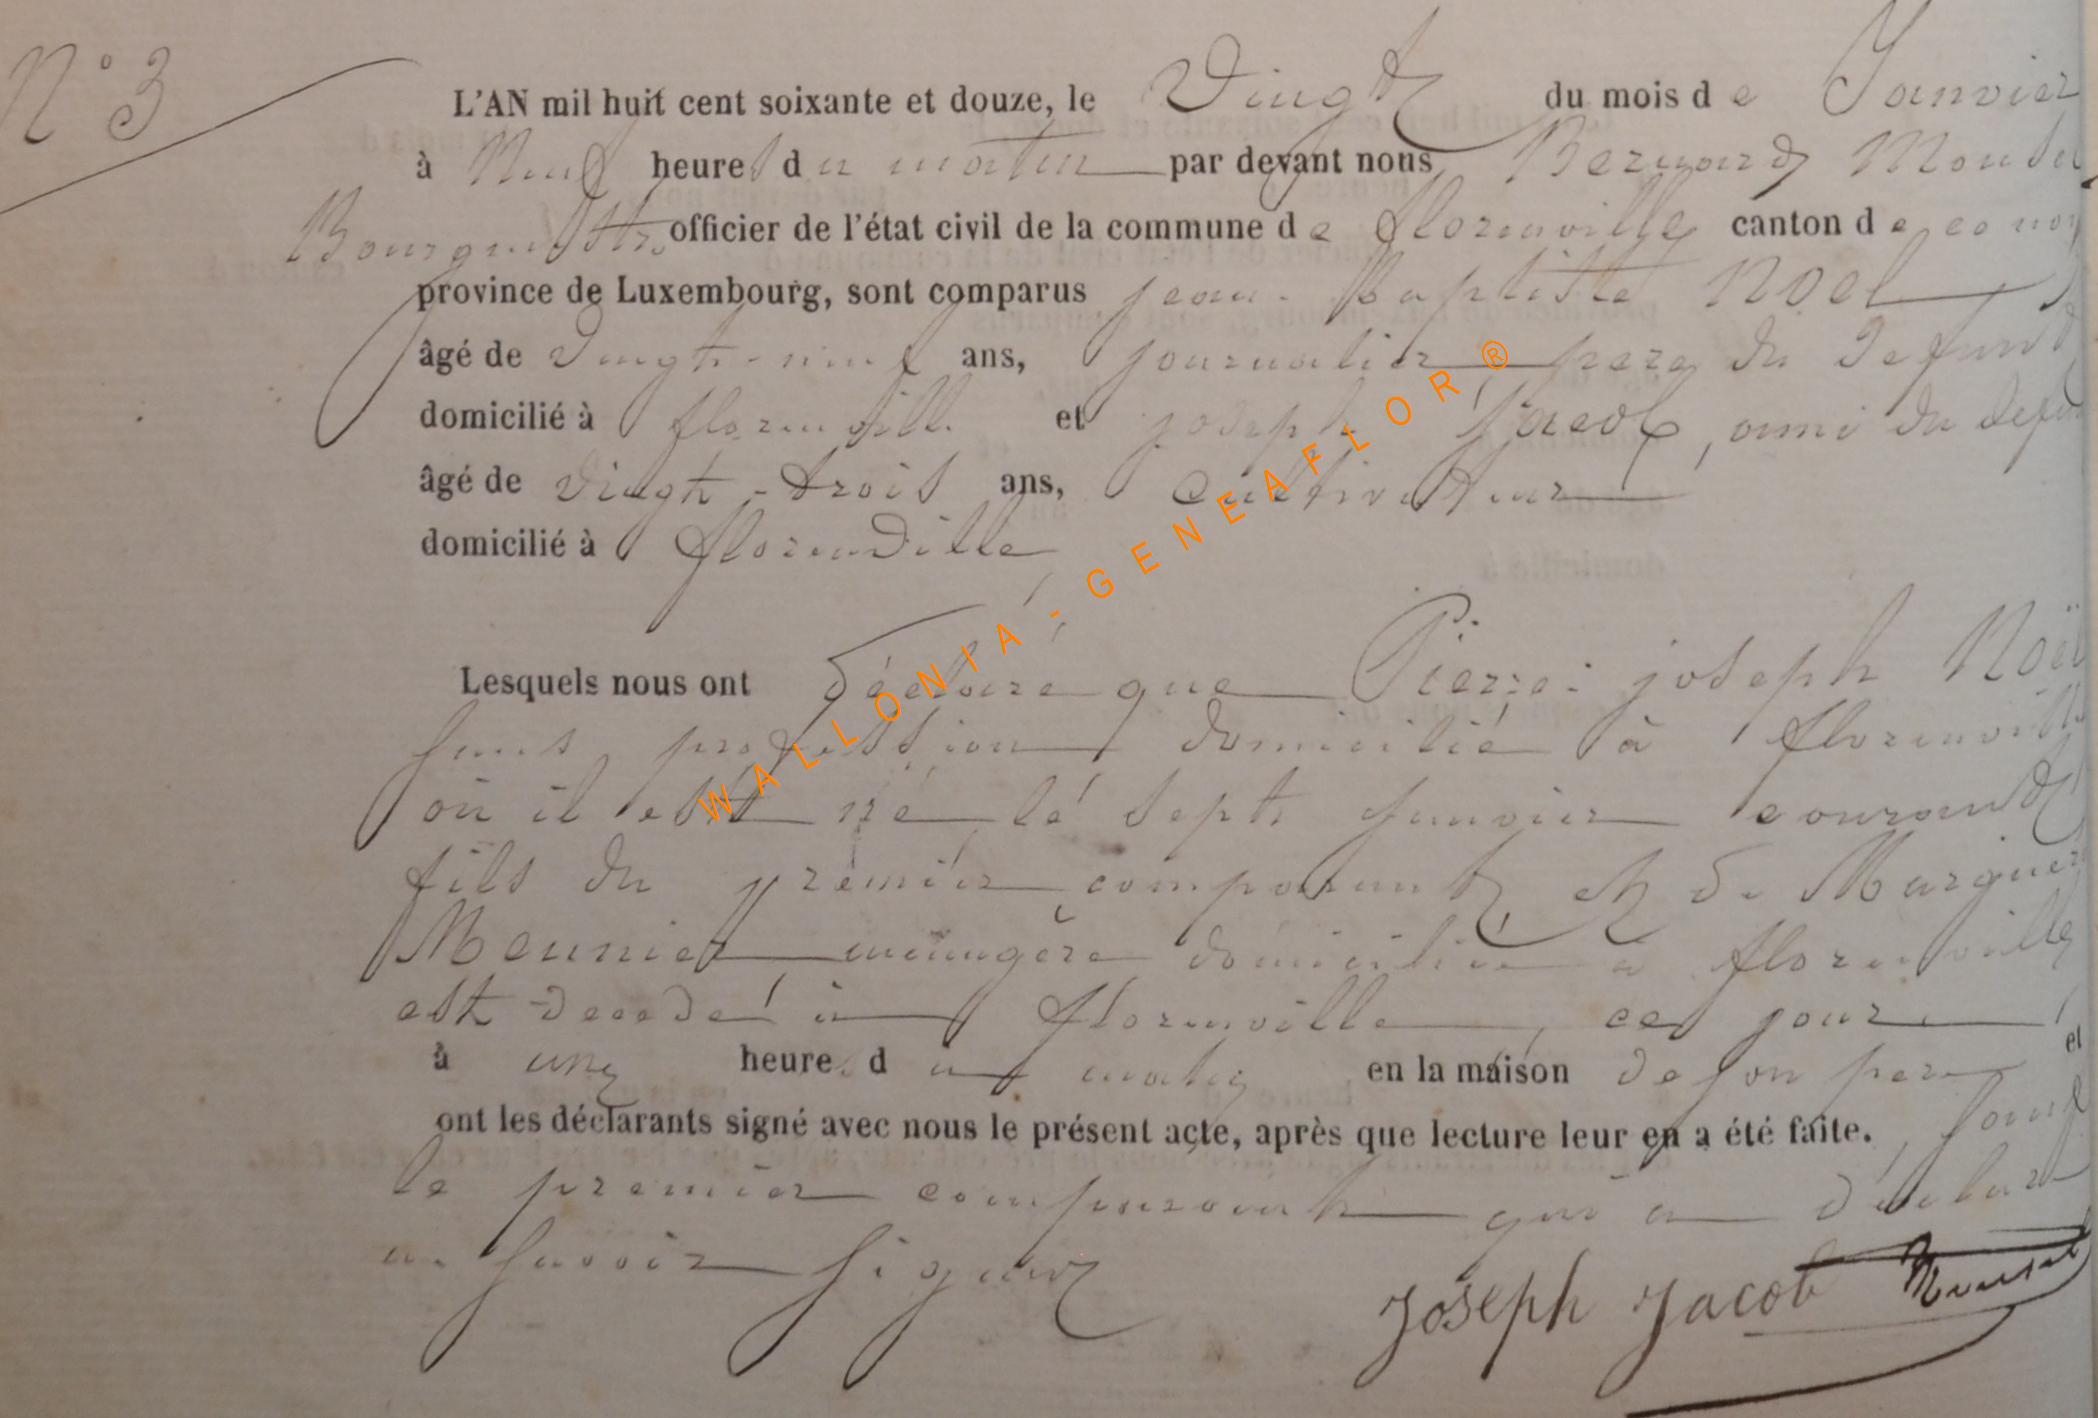 N° 3
L'AN mil huit cent soixante et douze, le Vingt du mois de Janvier
à Neuf heures du matin par devant nous Bernard
Bourgmestre officier de l'état civil de la commune de florenville canton de
province de Luxembourg, sont comparus jean-Baptiste Noel
âgé de Vingt-neuf ans, journalier pere du defunt
domicilié à florenville et joseph jacob, ami du defunt
âgé de vingt-trois ans, Cultivateur
domicilié à florenville
Lesquels nous ont déclaré que Pierre-joseph Noël
sans profession domicilié à florenville
où il est né le sept janvier courant
fils du premier comparant et de Marguer
Meunier ménagère domiciliée à florenville
est decedé à florenville, ce jour
à une heure du matin en la maison de son pere et
ont les déclarants signé avec nous le présent acte, après que lecture leur en a été faite. , sauf
le premier comparant qui a déclaré
ne savoir signer
Joseph Jacob
WALLONIA-GENEAFLOR®